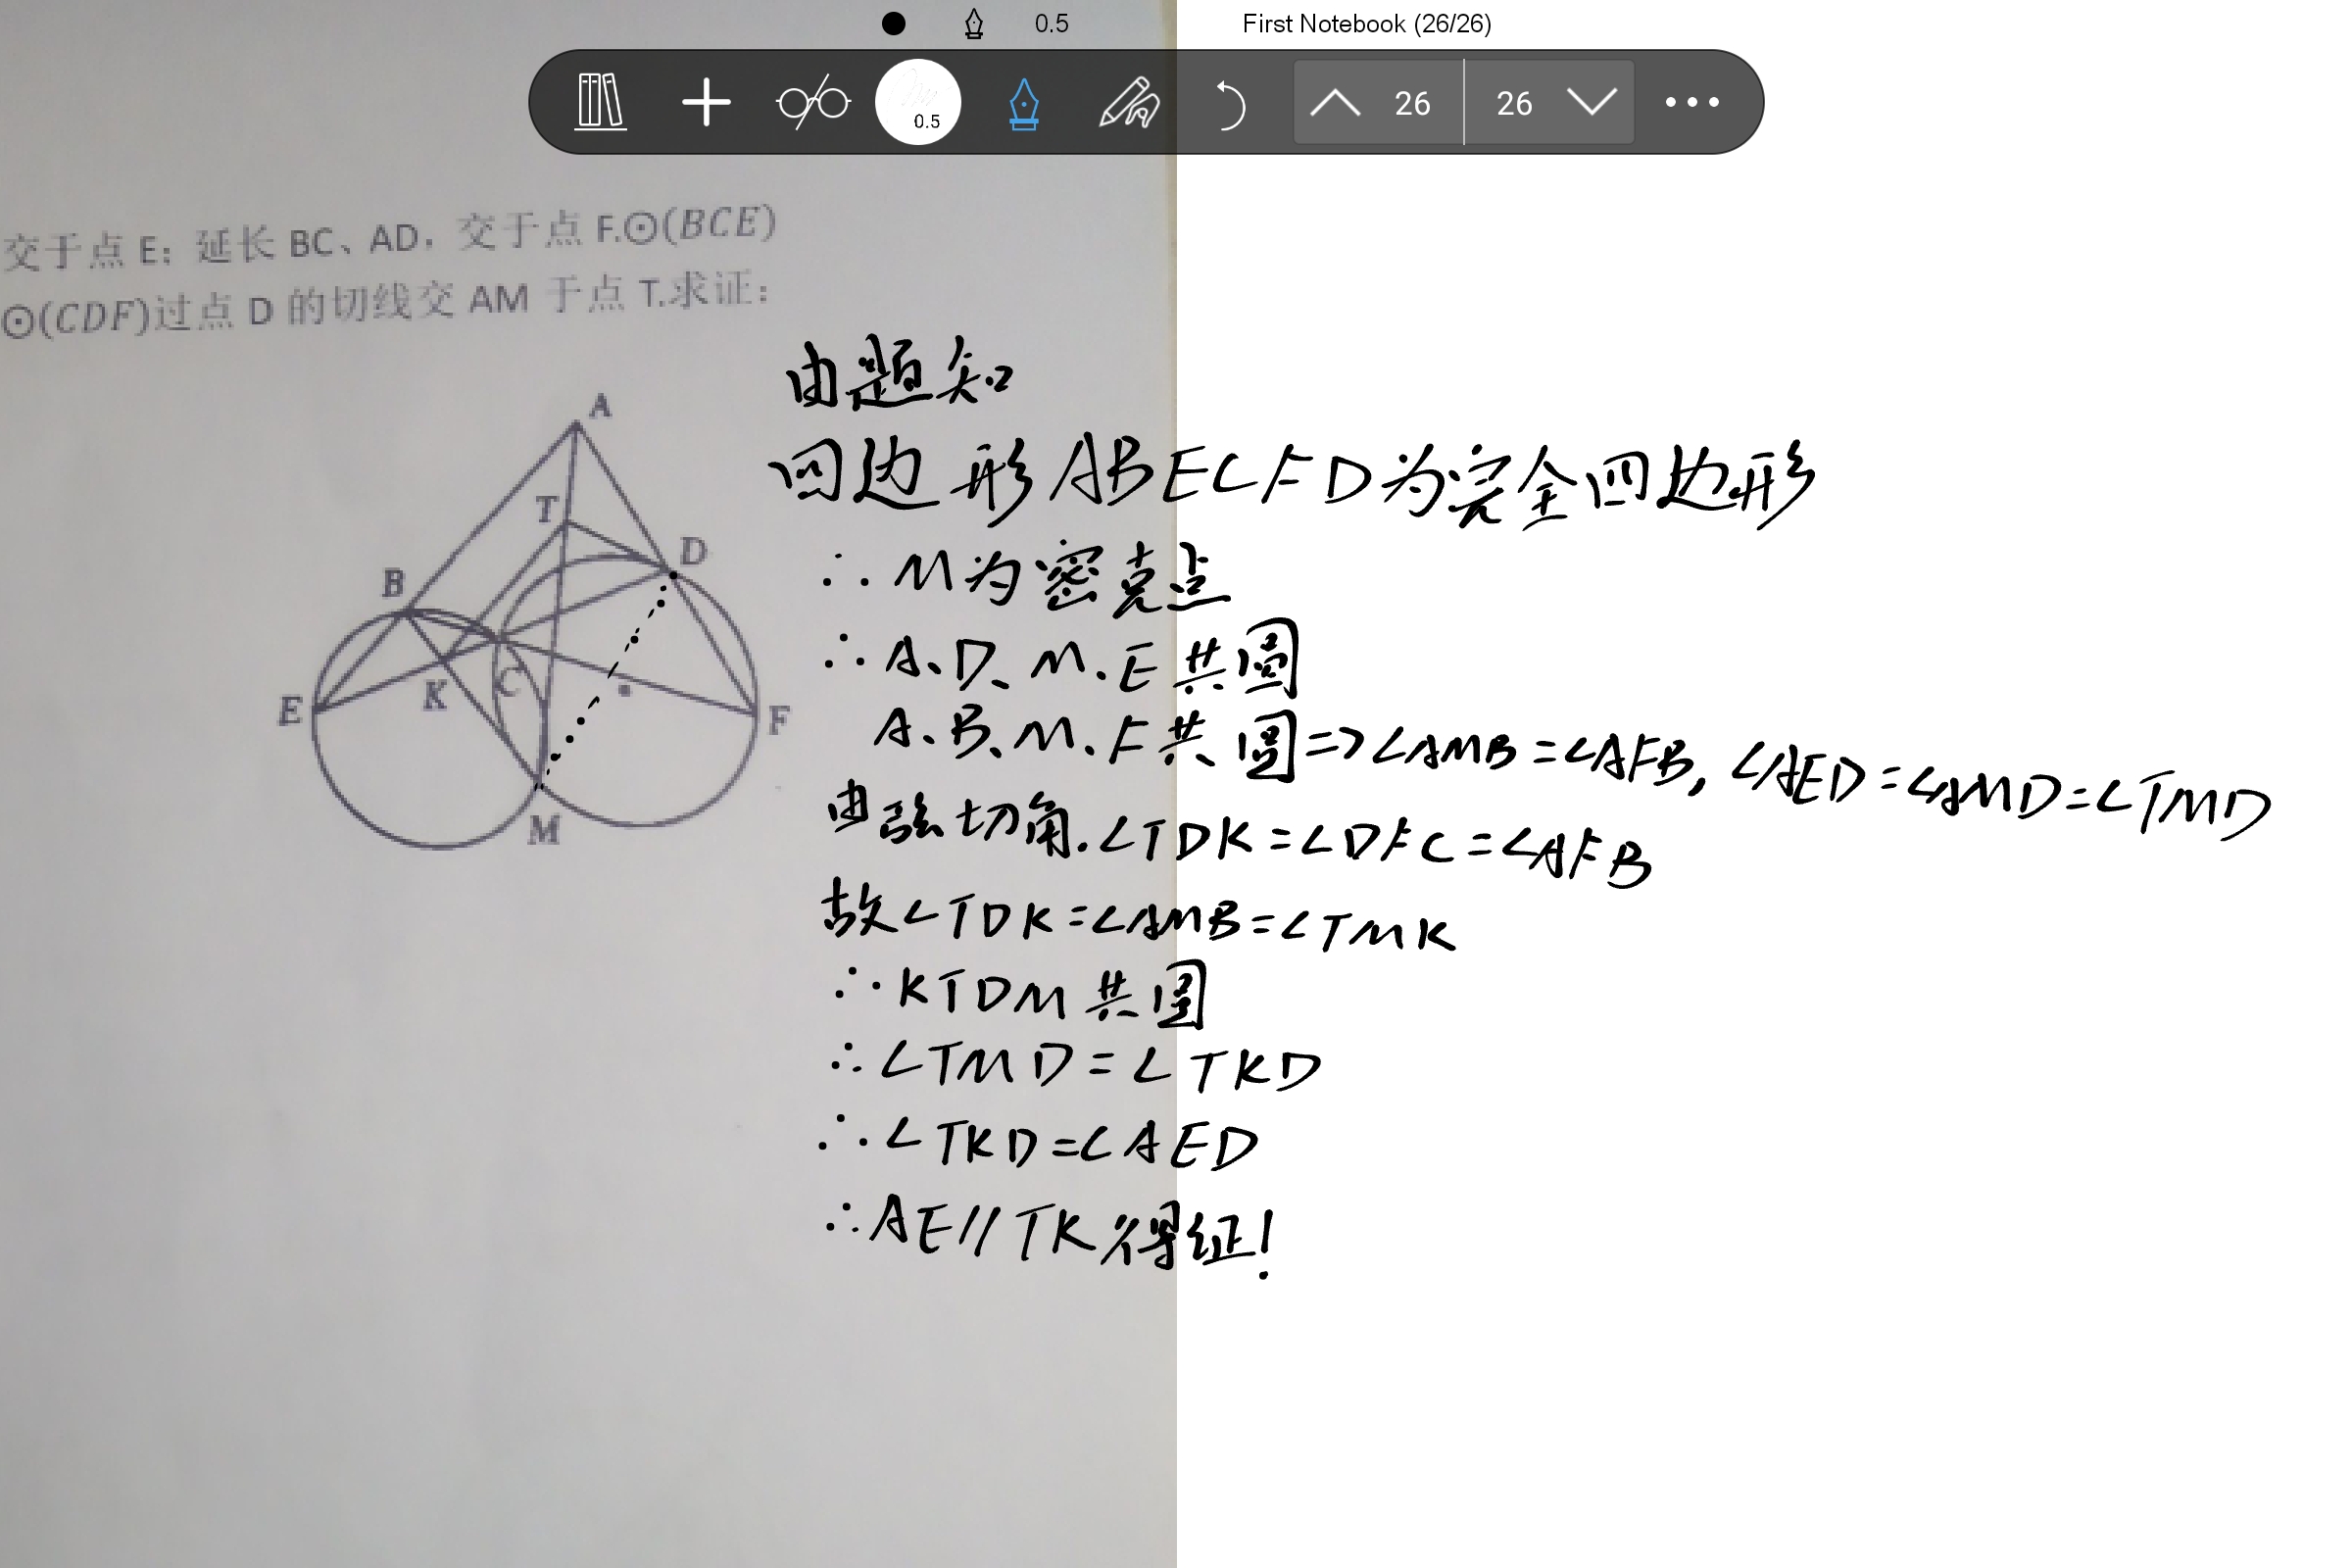 0.5
First Notebook (26/26)
0.5
26
26
交于点 E; 延长 BC、AD, 交于点 F.⊙(BCE)
⊙(CDF)过点 D 的切线交 AM 于点 T.求证:
A
T
D
B
E
K
C
F
M
由题知
四边形ABECFD为完全四边形
∴M为密克点
∴A、D、M、E共圆
A、B、M、F共圆=>∠AMB=∠AFB, ∠AED=∠AMD=∠TMD
由弦切角.∠TDK=∠DFC=∠AFB
故∠TDK=∠AMB=∠TMK
∴KTDM共圆
∴∠TMD=∠TKD
∴∠TKD=∠AED
∴AE//TK得证!